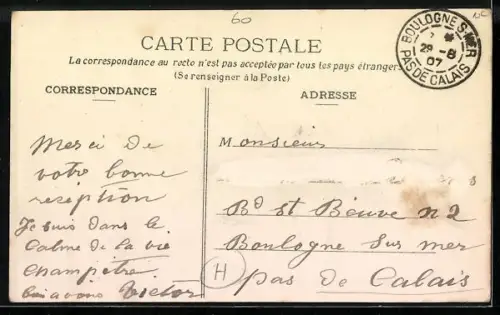 60
CARTE POSTALE
La correspondance au recto n'est pas acceptée par tous les pays étrangers
(Se renseigner à la Poste)
BOULOGNE S-MER
29 -8
07
PAS DE CALAIS
CORRESPONDANCE
Merci de
votre bonne
reception
Je suis dans le
Calme de la vie
champêtre.
Victor
ADRESSE
Monsieur
Bd st Beuve n 2
Boulogne sur mer
H
pas de Calais